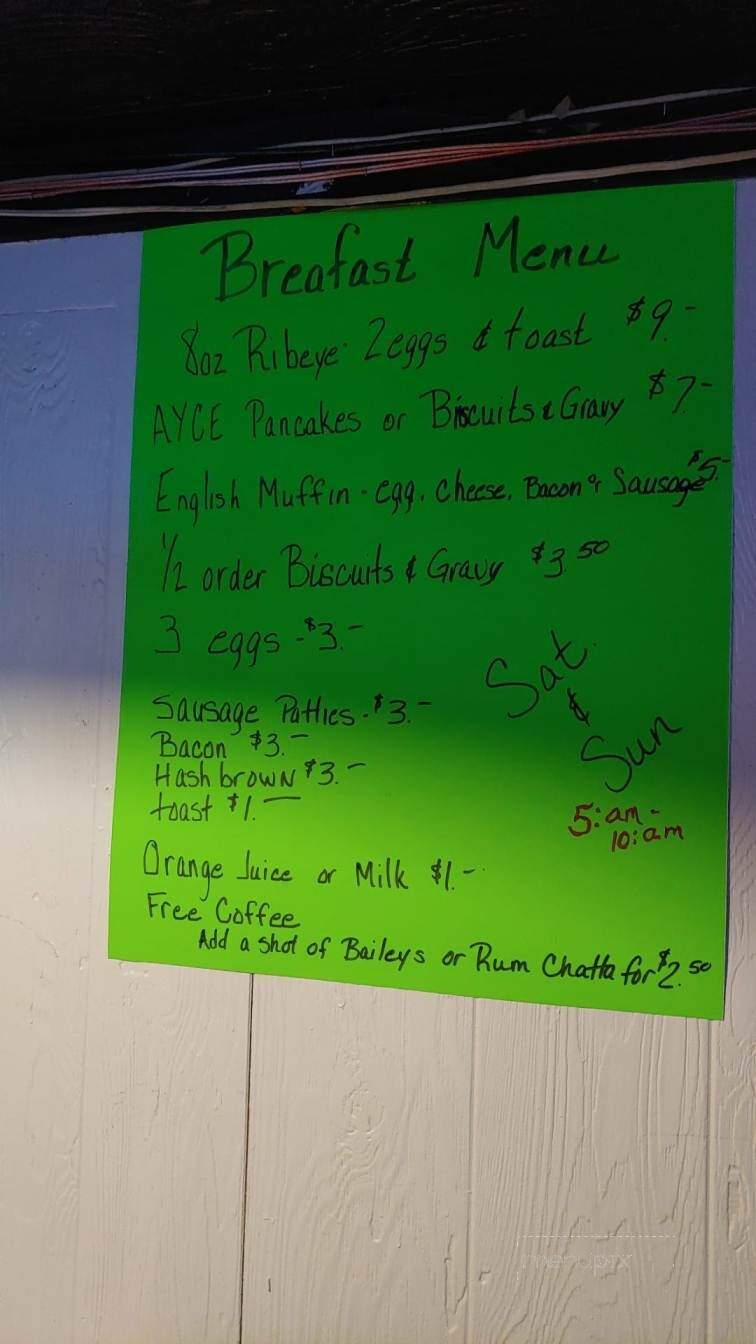 Breafast Menu
8oz Ribeye· 2eggs & toast $9.-
AYCE Pancakes or Biscuits & Gravy $7.-
English Muffin - egg, cheese, Bacon or Sausage $5.-
1/2 order Biscuits & Gravy $3.50
3 eggs -$3.-
Sausage Patties -$3.-
Bacon $3.-
Hash brown $3.-
toast $1.-
Sat.
&
Sun
5:am -
10:am
Orange Juice or Milk $1.-
Free Coffee
Add a shot of Baileys or Rum Chatta for $2.50
menupix